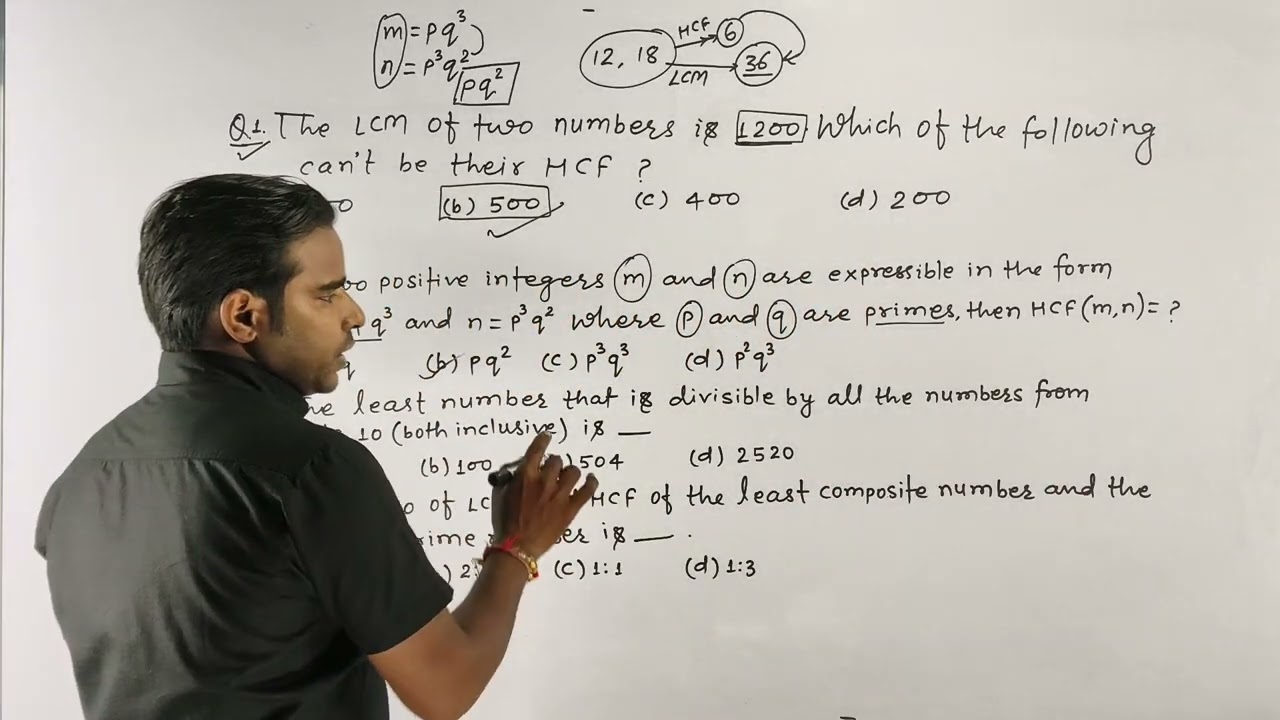 m = pq³
n = p³q²
pq²
12, 18 HCF 6
LCM 36
Q.1. The LCM of two numbers is 1200. Which of the following
can't be their HCF ?
(b) 500 (c) 400 (d) 200
positive integers m and n are expressible in the form
q³ and n = p³q² where p and q are primes, then HCF(m,n) = ?
(b) pq² (c) p³q³ (d) p²q³
least number that is divisible by all the numbers from
10 (both inclusive) is __
(b) 100 504 (d) 2520
of HCF of the least composite number and the
is __ .
(c) 1:1 (d) 1:3